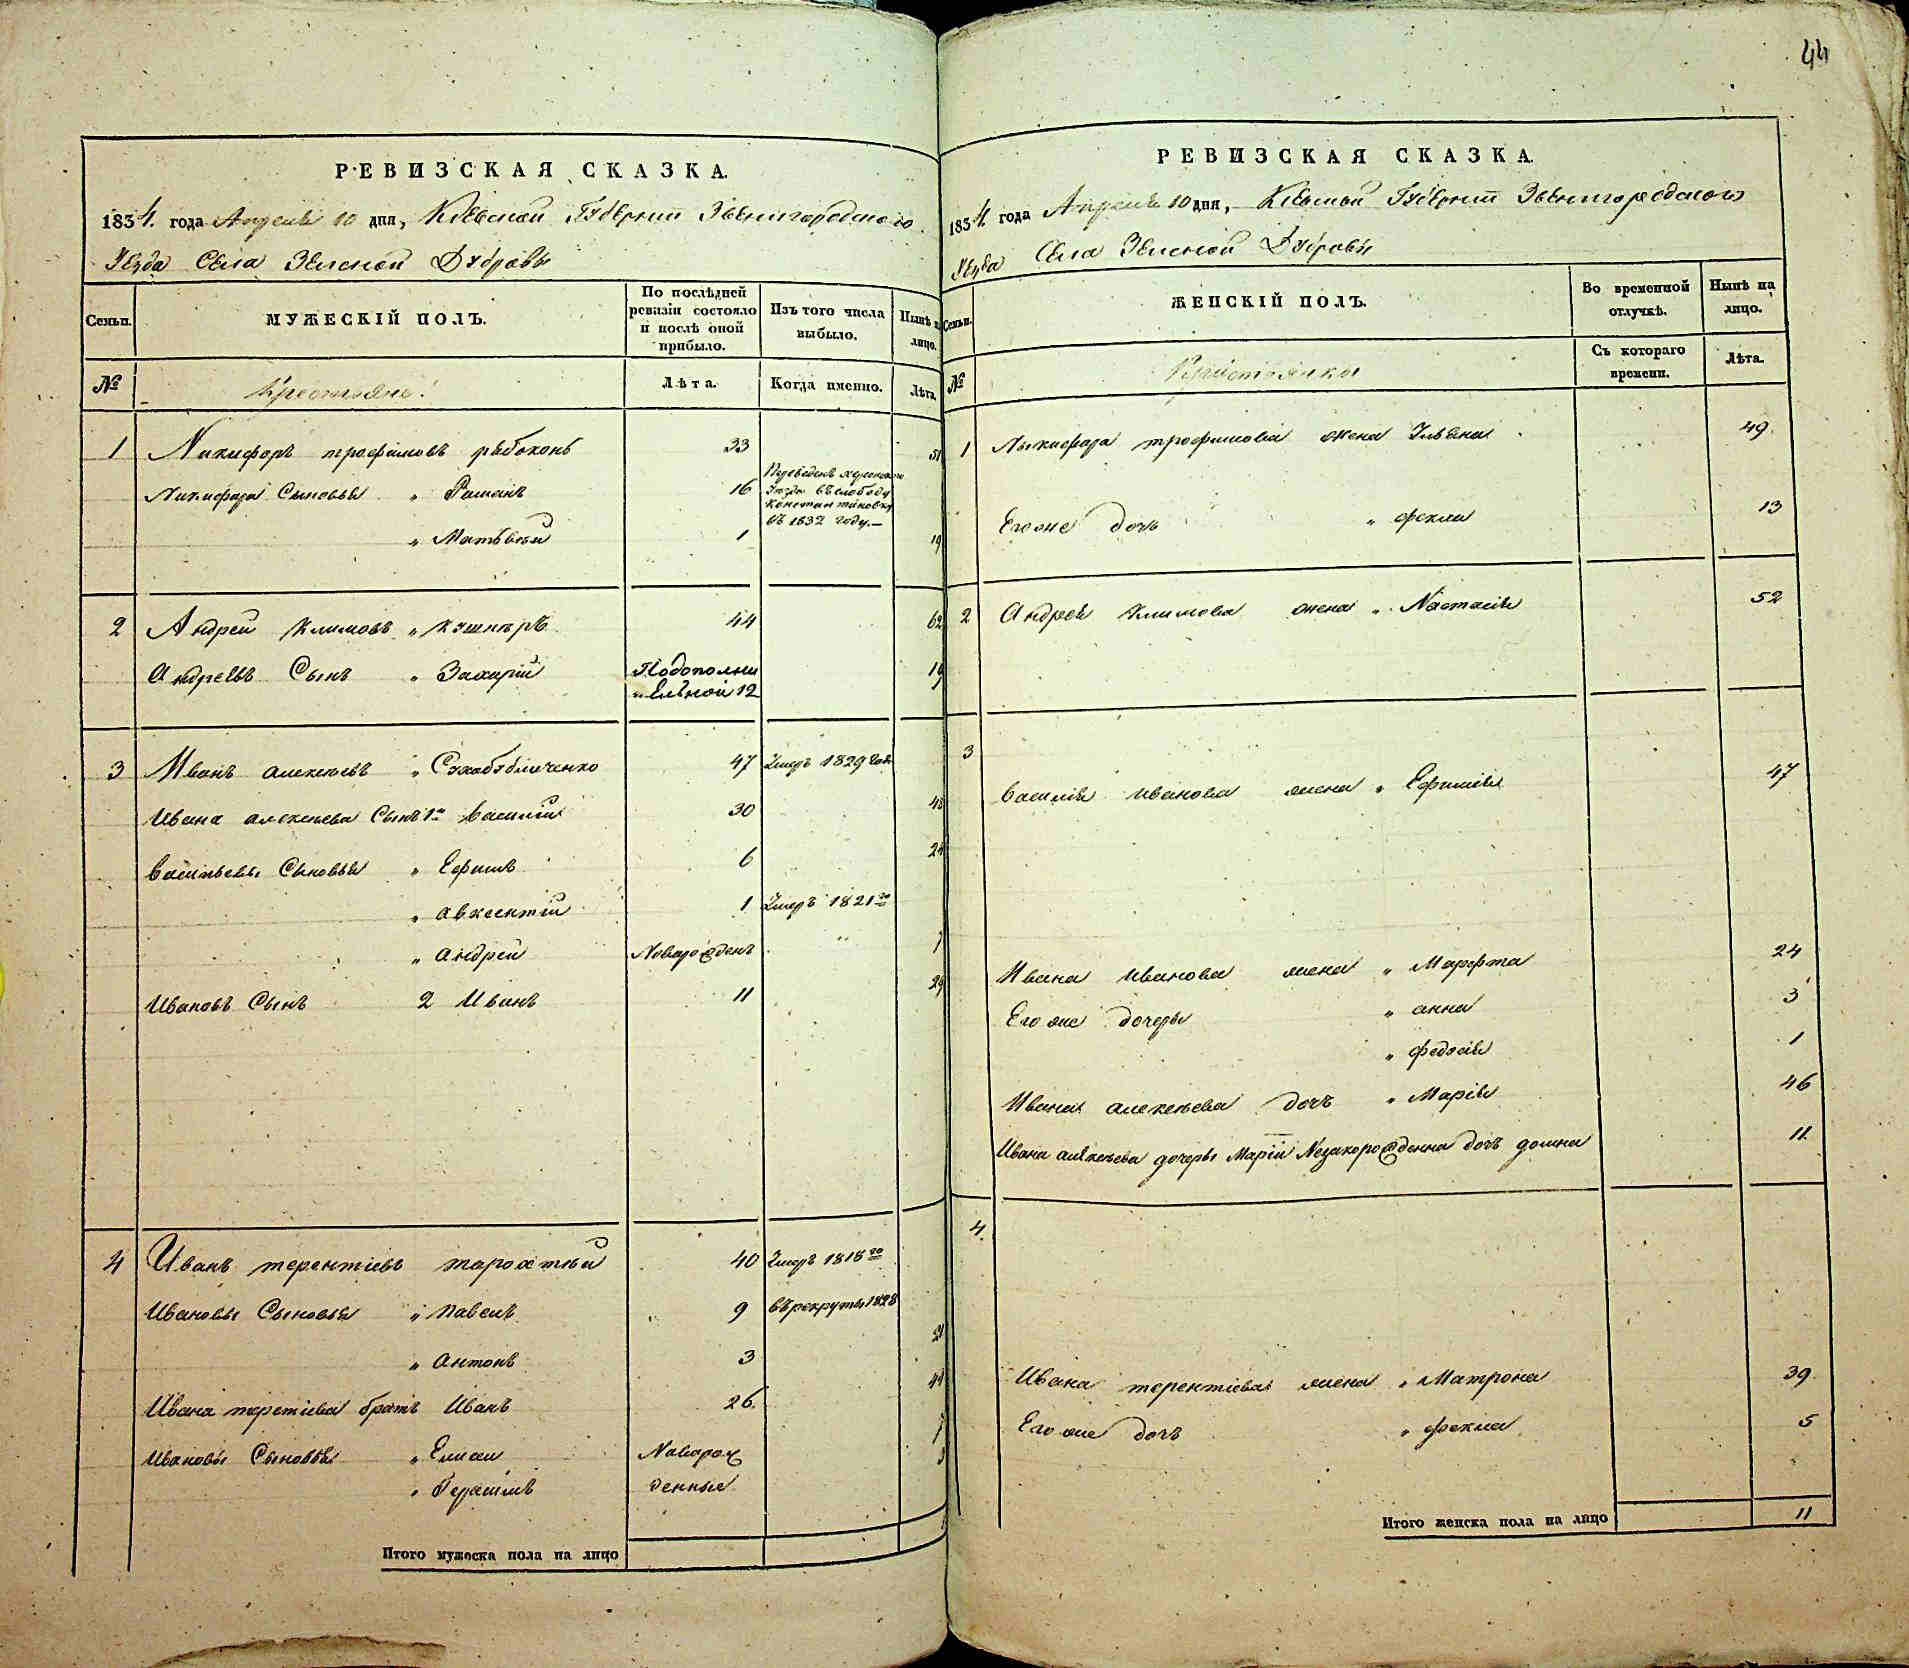 44
РЕВИЗСКАЯ СКАЗКА.
1834. года Апреля 10 дня, Киевской Губернии Звенигородского
Уезда Села Зеленой Дубровы
Семьи.
МУЖЕСКІЙ ПОЛЪ.
По послѣдней ревизіи состояло и послѣ оной прибыло.
Изъ того числа выбыло.
Нынѣ лицо.
№
Крестьяне
Лѣта.
Когда именно.
Лѣта.
1 Никифоръ трофимовъ рябоконь 33 51
Никифора Сыновья „ Раманъ 16 Переведенъ уезда въ слободу Константиновку въ 1832 году.—
„ Матвѣй 1 19
2 Андрей Климовъ „ кушниръ 44 62
Андреевъ Сынъ „ Захарій Подополни„ельной 12 19
3 Иванъ алексеевъ „ 47 Умеръ 1829 год
Ивана алексеева Сынъ 1й василій 30 48
васильевы Сыновья „ Ефимъ 6 24
„ авксентій 1 Умеръ 1821го
„ андрей Новорожденъ „ 7
Ивановъ Сынъ 2 Иванъ 11 29
4 Иванъ терентіевъ 40 Умеръ 1818го
Ивановы Сыновья „ павелъ 9 въ рекруты 1828
„ антонъ 3 21
Ивана теретіева братъ Иванъ 26 44
Ивановы Сыновья „ Наворож 7
„ Герасимъ денные 3
Итого мужеска пола на лицо
РЕВИЗСКАЯ СКАЗКА.
1834. года Апреля 10 дня, Киевской Губернии Звенигородского
Уезда Села Зеленой Дубровы
Семьи.
ЖЕНСКІЙ ПОЛЪ.
Во временной отлучкѣ.
Нынѣ на лицо.
№
Кристьянки
Съ котораго времени.
Лѣта.
1 Никифора трофимова жена Ульяна 49
Его же дочь „ фекла 13
2 Андрея климова жена „ Настасия 52
3
василія иванова жена „ Ефимія 47
Ивана иванова жена „ Марфта 24
Его же дочеры „ анна 3
„ федосія 1
Ивана алексеева дочъ „ Марія 46
Ивана алексеева дочеры Маріи Незакорожденна дочъ домна 11
4.
Ивана терентіева жена „ Матрона 39
Его же дочъ „ фекла 5
Итого женска пола на лицо 11